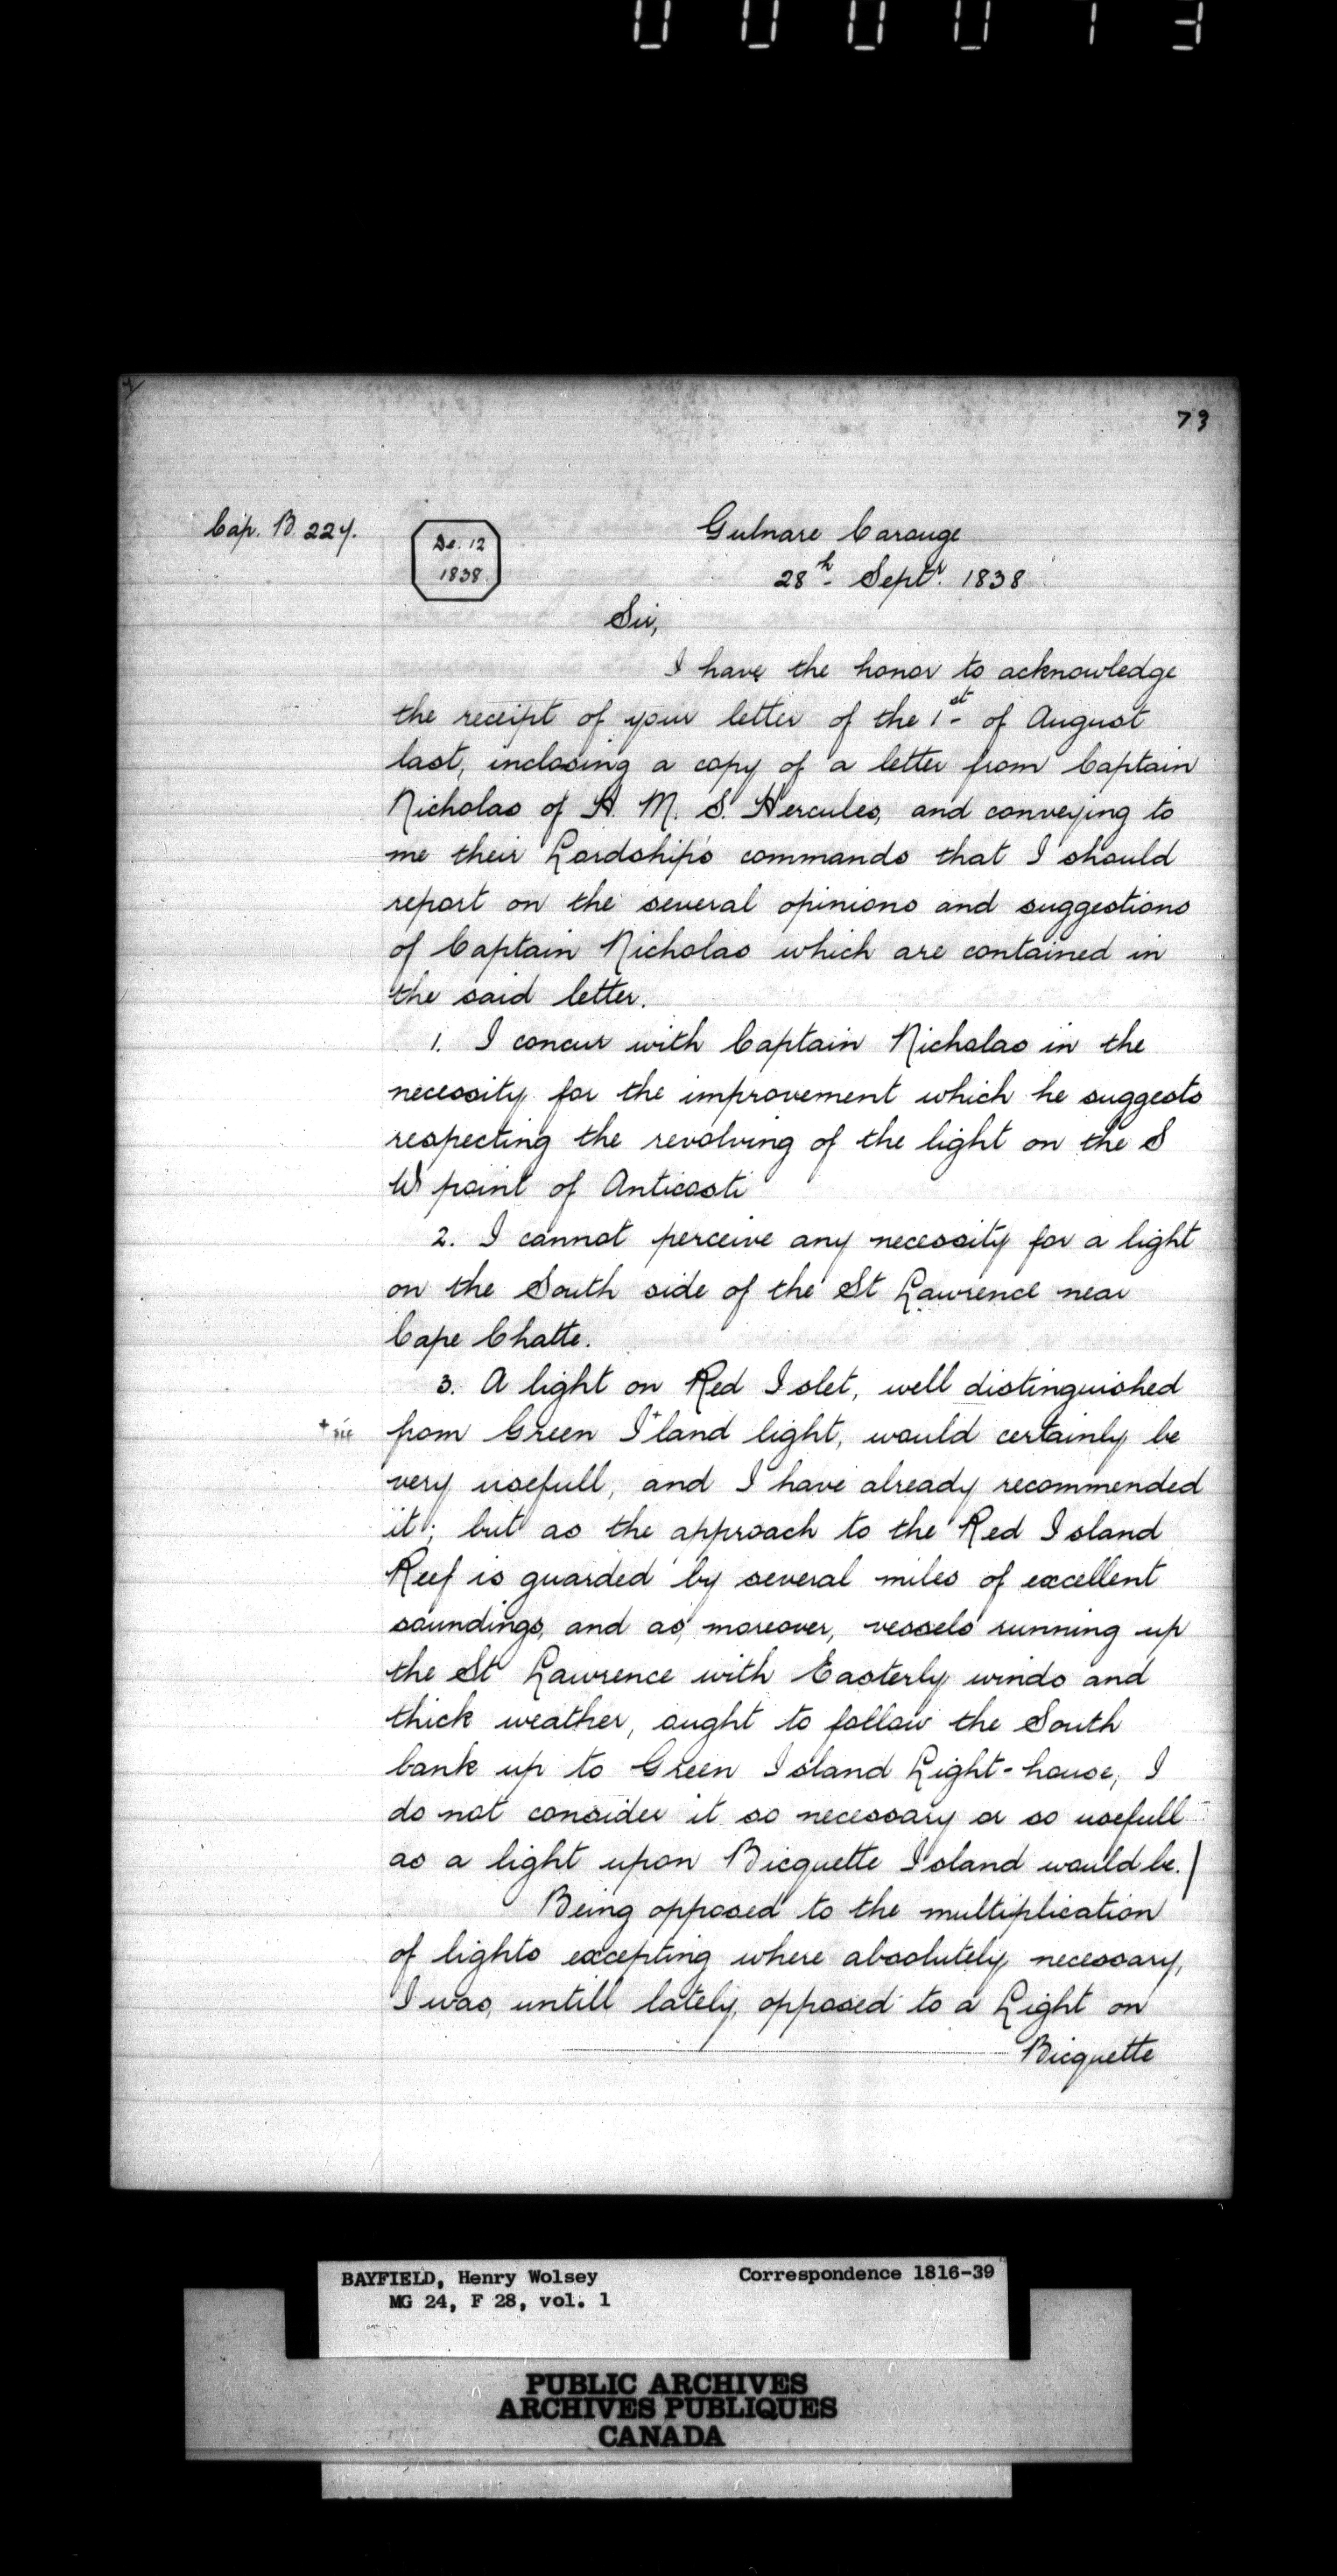 000073
73
Cap. B. 227.
De. 12
1838.
Gulnare Carouge
28h Septr. 1838
Sir,
I have the honor to acknowledge
the receipt of your letter of the 1st of August
last, inclosing a copy of a letter from Captain
Nicholas of H. M. S. Hercules, and conveying to
me their Lordship's commands that I should
report on the several opinions and suggestions
of Captain Nicholas which are contained in
the said letter.
1. I concur with Captain Nicholas in the
necessity for the improvement which he suggests
respecting the revolving of the light on the S
W point of Anticosti
2. I cannot perceive any necessity for a light
on the South side of the St Lawrence near
Cape Chatte.
3. A light on Red Islet, well distinguished
+ sic
from Green I+land light, would certainly be
very usefull, and I have already recommended
it; but as the approach to the Red Island
Reef is guarded by several miles of excellent
soundings, and as, moreover, vessels running up
the St Lawrence with Easterly winds and
thick weather, ought to follow the South
bank up to Green Island Light-house, I
do not consider it so necessary or so usefull
as a light upon Bicquette Island would be.
Being opposed to the multiplication
of lights excepting where absolutely necessary,
I was, untill lately, opposed to a Light on
Bicquette
BAYFIELD, Henry Wolsey Correspondence 1816-39
MG 24, F 28, vol. 1
PUBLIC ARCHIVES
ARCHIVES PUBLIQUES
CANADA